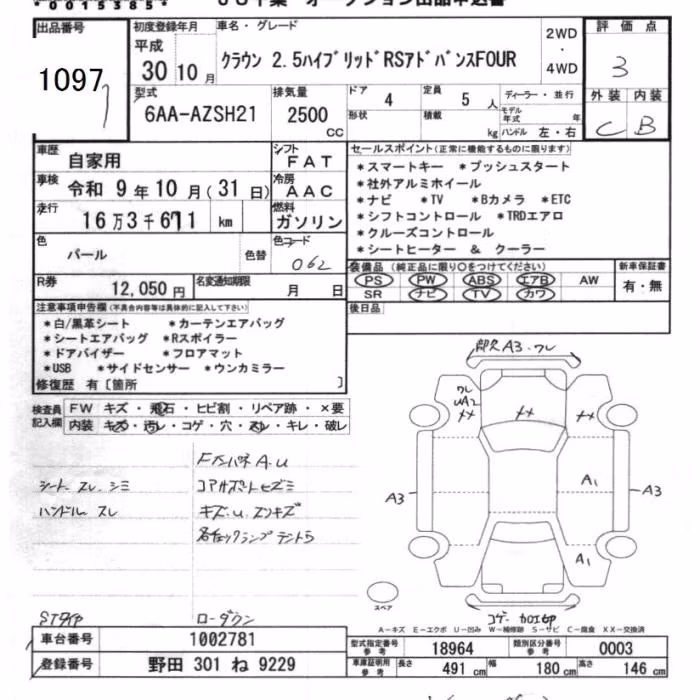 *0015385*
出品番号
1097
初度登録年月
平成
30 10 月
車名・グレード
クラウン 2.5ハイブリッドRSアドバンスFOUR
2WD
・
4WD
評価点
3
外装 内装
C B
型式
6AA-AZSH21
排気量
2500
CC
ドア
4
形状
定員
5 人
積載
kg
ディーラー・並行
モデル年式 年
ハンドル 左・右
車歴
自家用
車検
令和 9 年 10 月 (31 日)
走行
16 万 3 千 671 km
シフト
FAT
冷房
AAC
燃料
ガソリン
色
パール
色替
色コード
062
R券
12,050 円
名変通知期限
月 日
セールスポイント(正常に機能するものに限ります)
*スマートキー *プッシュスタート
*社外アルミホイール
*ナビ *TV *Bカメラ *ETC
*シフトコントロール *TRDエアロ
*クルーズコントロール
*シートヒーター & クーラー
装備品 (純正品に限り○をつけてください)
PS PW ABS エアB AW
SR ナビ TV カワ
新車保証書
有・無
後日品
注意事項申告欄(不具合内容等は具体的に記入して下さい)
*白/黒革シート *カーテンエアバッグ
*シートエアバッグ *Rスポイラー
*ドアバイザー *フロアマット
*USB *サイドセンサー *ウンカミラー
修復歴 有〔箇所 〕
検査員記入欄
FW キズ・飛石・ヒビ割・リペア跡・×要
内装 キズ・汚レ・コゲ・穴・スレ・キレ・破レ
シート スレ、シミ
ハンドル スレ
コアサポートヒズミ
ローダウン
A3 ワレ
ワレ
UA2
××
××
××
A3
A1
A3
A1
スペア
A-キズ E-エクボ U-凹み W-補修跡 S-サビ C-腐食 XX-交換済
車台番号
1002781
登録番号
野田 301 ね 9229
型式指定番号
参考
18964
類別区分番号
参考
0003
車庫証明用
参考
長さ
491 cm
幅
180 cm
高さ
146 cm